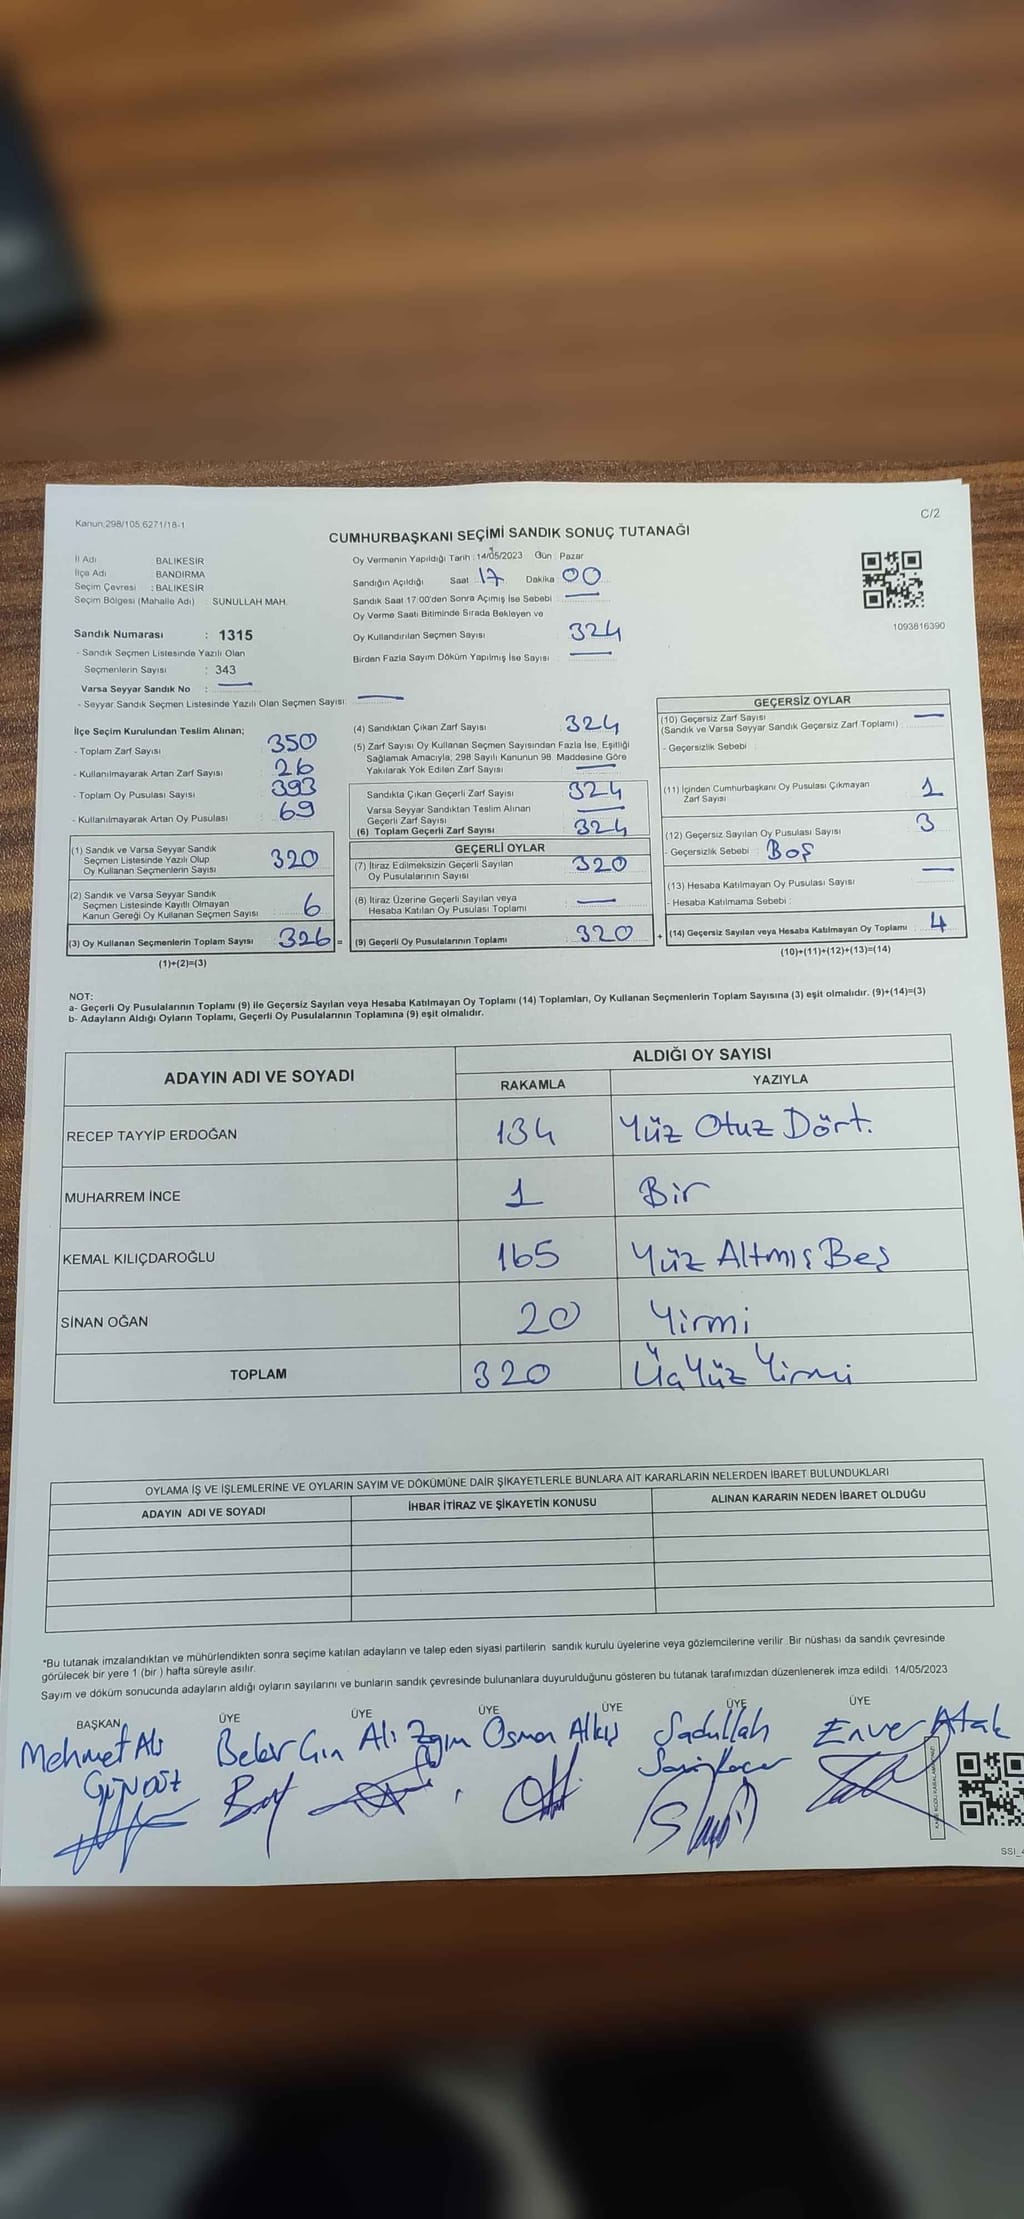 Kanun:298/105,6271/18-1
C/2
CUMHURBAŞKANI SEÇİMİ SANDIK SONUÇ TUTANAĞI
İl Adı BALIKESİR
İlçe Adı BANDIRMA
Seçim Çevresi : BALIKESİR
Seçim Bölgesi (Mahalle Adı) SUNULLAH MAH.
Sandık Numarası : 1315
- Sandık Seçmen Listesinde Yazılı Olan
Seçmenlerin Sayısı : 343
Varsa Seyyar Sandık No : —
- Seyyar Sandık Seçmen Listesinde Yazılı Olan Seçmen Sayısı: —
Oy Vermenin Yapıldığı Tarih : 14/05/2023 Gün : Pazar
Sandığın Açıldığı Saat : 17 Dakika : 00
Sandık Saat 17:00'den Sonra Açımış İse Sebebi : —
Oy Verme Saati Bitiminde Sırada Bekleyen ve
Oy Kullandırılan Seçmen Sayısı 324
Birden Fazla Sayım Döküm Yapılmış İse Sayısı : —
1093816390
İlçe Seçim Kurulundan Teslim Alınan;
- Toplam Zarf Sayısı : 350
- Kullanılmayarak Artan Zarf Sayısı : 26
- Toplam Oy Pusulası Sayısı : 393
- Kullanılmayarak Artan Oy Pusulası : 69
(1) Sandık ve Varsa Seyyar Sandık
Seçmen Listesinde Yazılı Olup
Oy Kullanan Seçmenlerin Sayısı 320
(2) Sandık ve Varsa Seyyar Sandık
Seçmen Listesinde Kayıtlı Olmayan
Kanun Gereği Oy Kullanan Seçmen Sayısı 6
(3) Oy Kullanan Seçmenlerin Toplam Sayısı 326 =
(1)+(2)=(3)
(4) Sandıktan Çıkan Zarf Sayısı : 324
(5) Zarf Sayısı Oy Kullanan Seçmen Sayısından Fazla İse, Eşitliği
Sağlamak Amacıyla, 298 Sayılı Kanunun 98. Maddesine Göre
Yakılarak Yok Edilen Zarf Sayısı : —
Sandıkta Çıkan Geçerli Zarf Sayısı : 324
Varsa Seyyar Sandıktan Teslim Alınan
Geçerli Zarf Sayısı : —
(6) Toplam Geçerli Zarf Sayısı : 324
GEÇERLİ OYLAR
(7) İtiraz Edilmeksizin Geçerli Sayılan
Oy Pusulalarının Sayısı : 320
(8) İtiraz Üzerine Geçerli Sayılan veya
Hesaba Katılan Oy Pusulası Toplamı : —
(9) Geçerli Oy Pusulalarının Toplamı : 320 +
GEÇERSİZ OYLAR
(10) Geçersiz Zarf Sayısı —
(Sandık ve Varsa Seyyar Sandık Geçersiz Zarf Toplamı) :
- Geçersizlik Sebebi :
(11) İçinden Cumhurbaşkanı Oy Pusulası Çıkmayan
Zarf Sayısı 1
(12) Geçersiz Sayılan Oy Pusulası Sayısı : 3
- Geçersizlik Sebebi : Boş
(13) Hesaba Katılmayan Oy Pusulası Sayısı : —
- Hesaba Katılmama Sebebi :
(14) Geçersiz Sayılan veya Hesaba Katılmayan Oy Toplamı : 4
(10)+(11)+(12)+(13)=(14)
NOT:
a- Geçerli Oy Pusulalarının Toplamı (9) ile Geçersiz Sayılan veya Hesaba Katılmayan Oy Toplamı (14) Toplamları, Oy Kullanan Seçmenlerin Toplam Sayısına (3) eşit olmalıdır. (9)+(14)=(3)
b- Adayların Aldığı Oyların Toplamı, Geçerli Oy Pusulalarının Toplamına (9) eşit olmalıdır.
ADAYIN ADI VE SOYADI ALDIĞI OY SAYISI
RAKAMLA YAZIYLA
RECEP TAYYİP ERDOĞAN 134 Yüz Otuz Dört.
MUHARREM İNCE 1 Bir
KEMAL KILIÇDAROĞLU 165 Yüz Altmış Beş
SİNAN OĞAN 20 Yirmi
TOPLAM 320 Üç Yüz Yirmi
OYLAMA İŞ VE İŞLEMLERİNE VE OYLARIN SAYIM VE DÖKÜMÜNE DAİR ŞİKAYETLERLE BUNLARA AİT KARARLARIN NELERDEN İBARET BULUNDUKLARI
ADAYIN ADI VE SOYADI İHBAR İTİRAZ VE ŞİKAYETİN KONUSU ALINAN KARARIN NEDEN İBARET OLDUĞU
*Bu tutanak imzalandıktan ve mühürlendikten sonra seçime katılan adayların ve talep eden siyasi partilerin sandık kurulu üyelerine veya gözlemcilerine verilir. Bir nüshası da sandık çevresinde
görülecek bir yere 1 (bir ) hafta süreyle asılır.
Sayım ve döküm sonucunda adayların aldığı oyların sayılarını ve bunların sandık çevresinde bulunanlara duyurulduğunu gösteren bu tutanak tarafımızdan düzenlenerek imza edildi. 14/05/2023
BAŞKAN ÜYE ÜYE ÜYE ÜYE ÜYE ÜYE
Mehmet Ali Beler Gin Ali Osman Alkış Sadullah Enver Atak